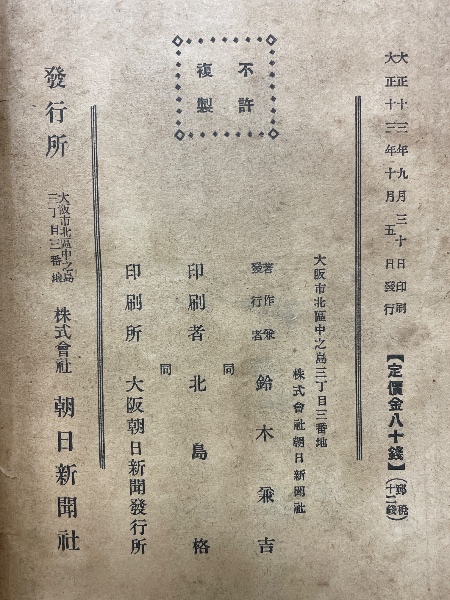 大正十三年九月三十日印刷
大正十三年十月五日發行
【定價金八十錢】
(郵稅十二錢)
不許
複製
大阪市北區中之島三丁目三番地
株式會社朝日新聞社
著作兼
發行者
鈴木兼吉
同
印刷者 北島格
同
印刷所 大阪朝日新聞發行所
發行所
大阪市北區中之島
三丁目三番地
株式會社 朝日新聞社